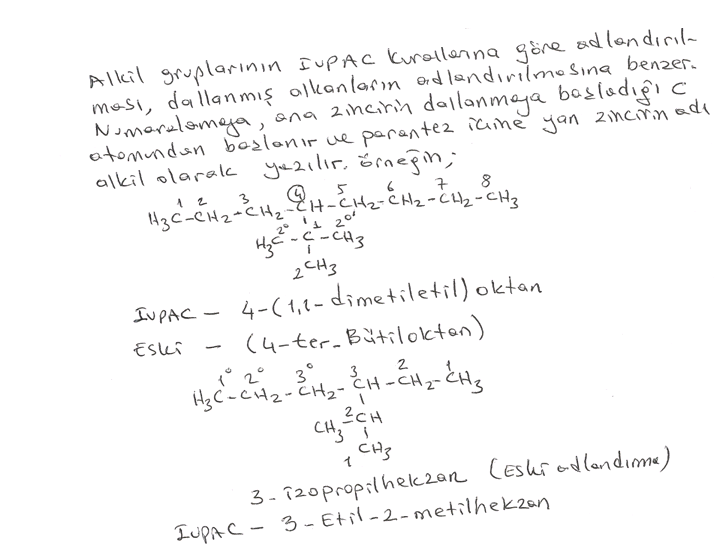 Alkil gruplarının IUPAC kurallarına göre adlandırıl-
ması, dallanmış alkanların adlandırılmasına benzer.
Numaralamaya, ana zincirin dallanmaya başladığı C
atomundan başlanır ve parantez içine yan zincirin adı
alkil olarak yazılır. Örneğin;
1 2 3 4 5 6 7 8
H3C-CH2-CH2-CH-CH2-CH2-CH2-CH3
2° 1 2°
H3C-C-CH3
2CH3
IUPAC - 4-(1,1-dimetiletil)oktan
Eski - (4-ter-Bütiloktan)
1° 2° 3° 3 2 1
H3C-CH2-CH2-CH-CH2-CH3
CH3 2CH
1 CH3
3-izopropilhekzan (Eski adlandırma)
IUPAC - 3-Etil-2-metilhekzan